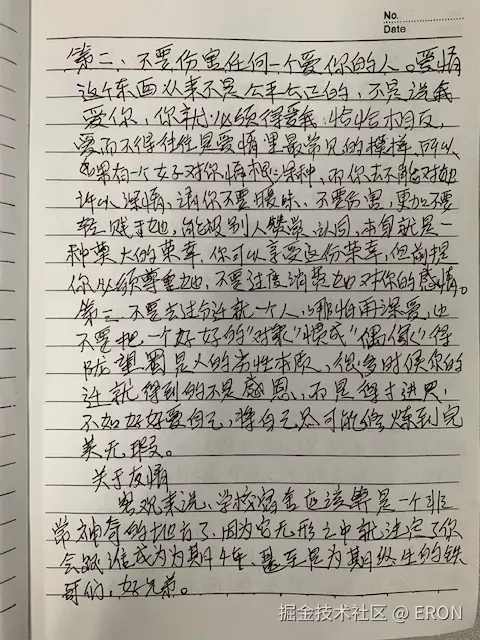 No.
Date
第二、不要伤害任何一个爱你的人。爱情
这个东西从来不是公平公正的,不是说我
爱你,你就必须得爱我,恰恰相反,
爱而不得往往是爱情里最常见的模样,所以
如果有一个女子对你情根深种,而你去不能对她
许以深情,请你不要暧昧、不要伤害,更加不要
轻贱于她,能被别人赞赏、认同,本身就是一
种莫大的荣幸,你可以享受这份荣幸,但前提
你必须尊重她,不要过度消费她对你的感情。
第三、不要去过分迁就一个人,哪怕再深爱,也
不要把一个好好的“对象”惯成“偶像”得
陇望蜀是人的劣性本质,很多时候你的
迁就得到的不是感恩,而是得寸进尺,
不如好好爱自己,将自己尽可能修炼到完
美无瑕。
关于友情
客观来说,学校宿舍应该算是一个非
常神奇的地方了,因为它无形之中就决定了你
会跟谁成为为期4年,甚至是为期终生的铁
哥们,好兄弟。
掘金技术社区 @ ERON